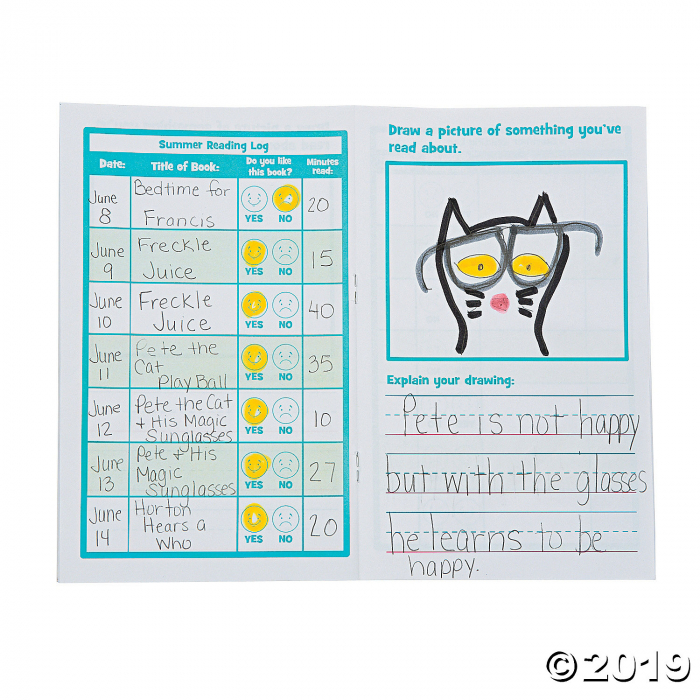 Summer Reading Log
Date: Title of Book: Do you like this book? Minutes read:
June 8 Bedtime for Francis YES NO 20
June 9 Freckle Juice YES NO 15
June 10 Freckle Juice YES NO 40
June 11 Pete the Cat Play Ball YES NO 35
June 12 Pete the Cat + His Magic Sunglasses YES NO 10
June 13 Pete + His Magic Sunglasses YES NO 27
June 14 Horton Hears a Who YES NO 20
Draw a picture of something you've
read about.
Explain your drawing:
Pete is not happy
but with the glasses
he learns to be
happy.
©2019